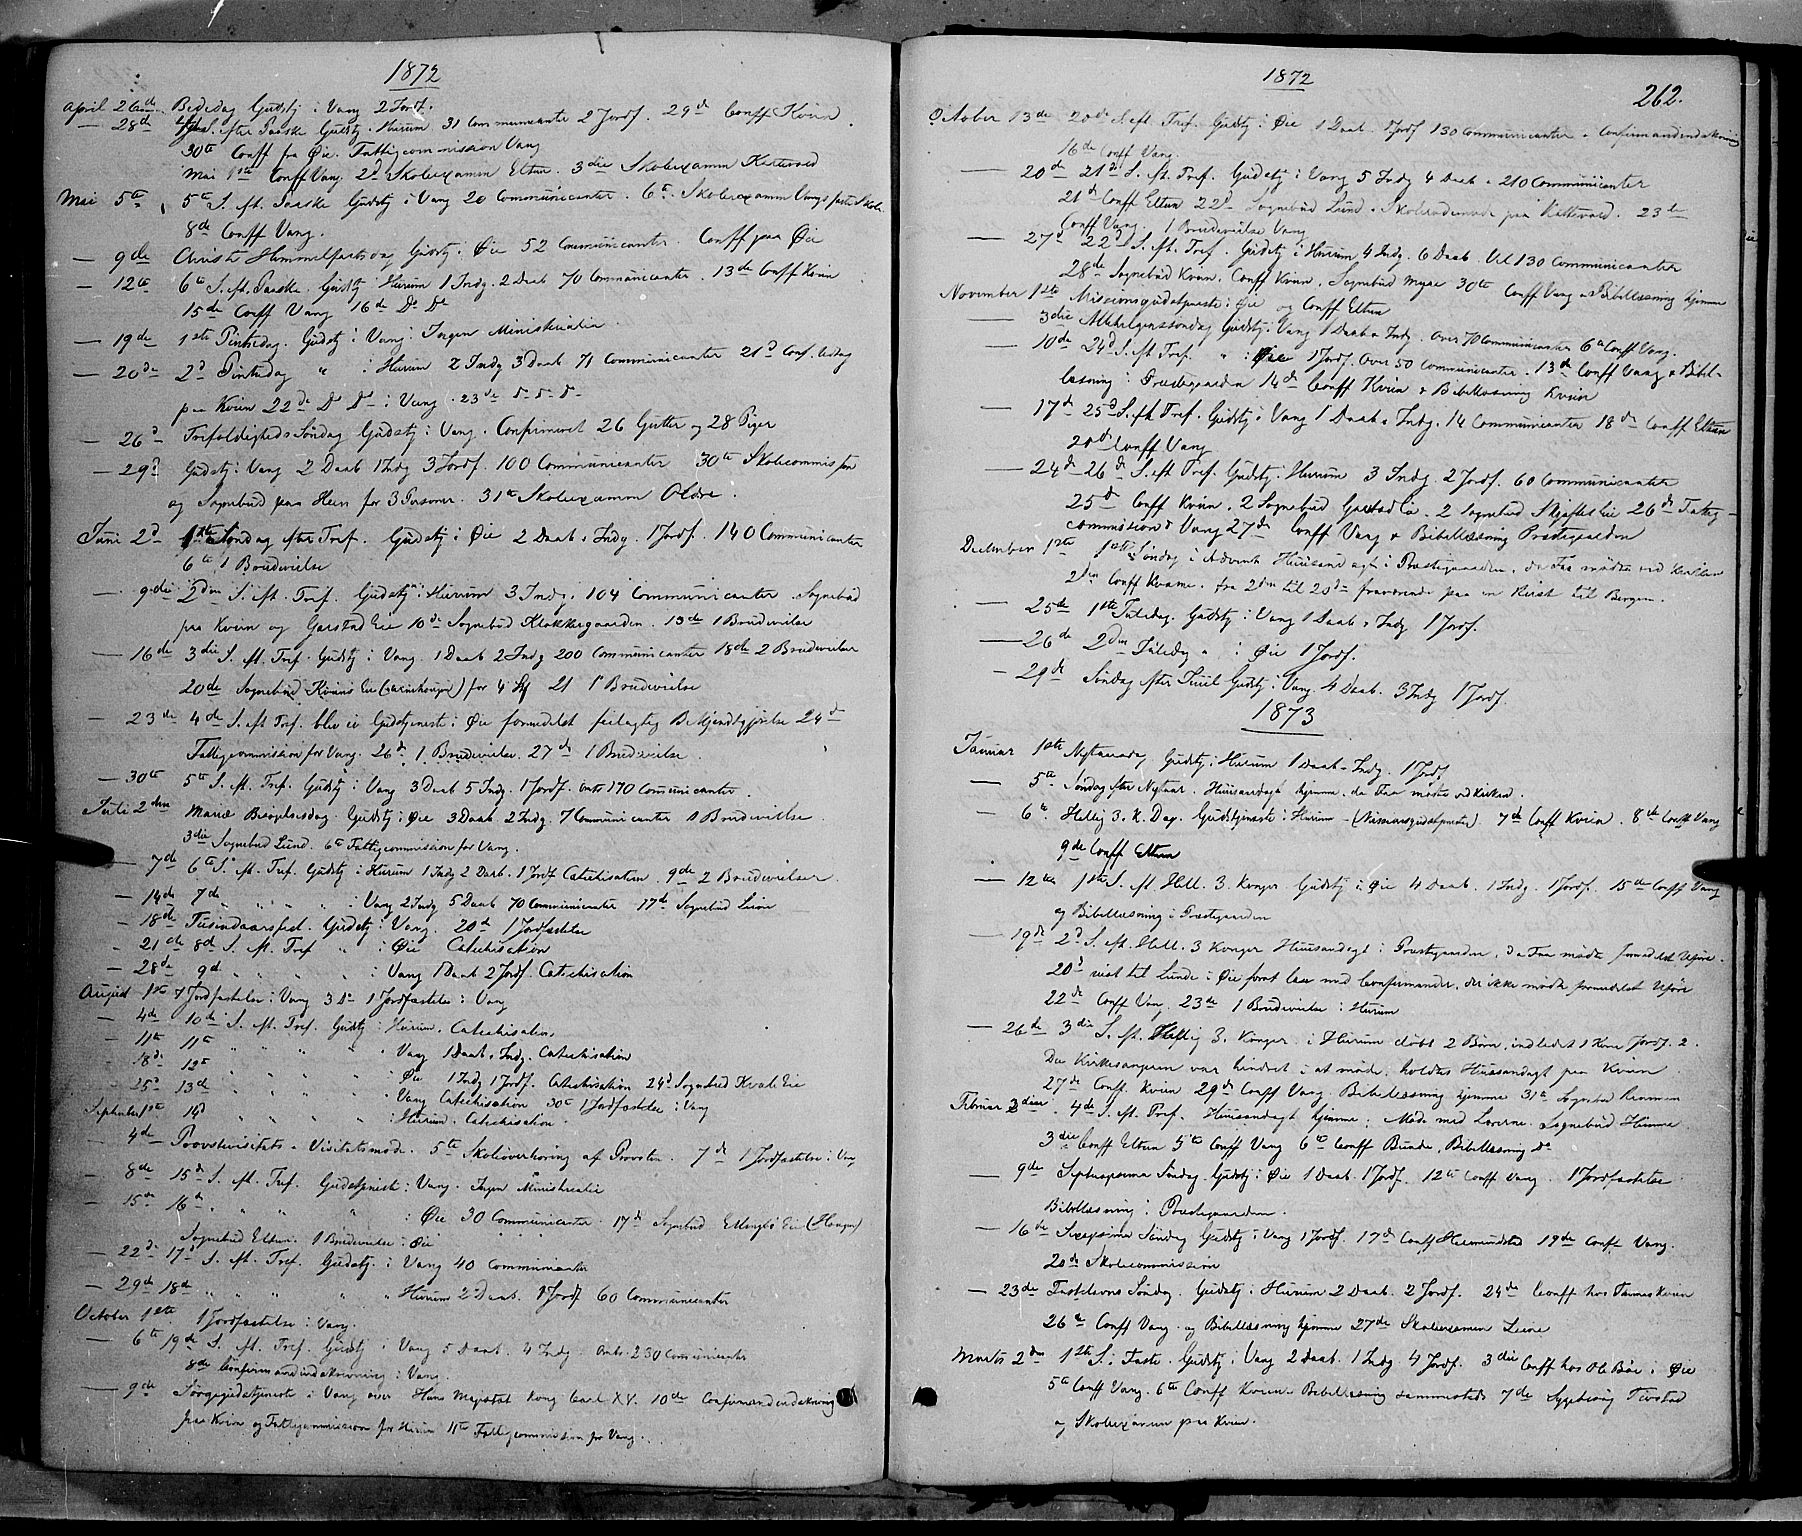 1872
April 26de Bededag Gudstj: i Vang 2 Jordf.
— 28de 4de S. efter Paaske Gudstj. Hurum 31 Communicanter 2 Jordf. 29de Conff Kvien.
30te Conff fra Øie. Fattigcommission Vang
Mai 1ste Conff Vang. 2d Skoleexamen Eltun. 3die Skoleexamen Kattevold
Mai 5te 5te S. eft. Paaske Gudstj i Vang 20 Communicanter. 6te Skoleexamen Vangs faste Skole.
8de Conff Vang.
— 9de Christi Himmelfartsdag Gudstj: Øie 52 Communicanter. Conff paa Øie
— 12te 6te S. eft. Paaske. Gudstj Hurum 1 Indg. 2 Daab 70 Communicanter. 13de Conff Kvien
15de Conff Vang 16de Do Do
— 19de 1ste Pintsedag. Gudstj i Vang. Ingen Ministerialia.
— 20de 2d Pintsedag " : Hurum 2 Indg 3 Daab 71 Communicanter 21d Conf.
paa Kvien 22de Do Do i Vang. 23de
— 26d Trefoldigheds Søndag Gudstj i Vang. Confirmeret 26 Gutter og 28 Piger
— 29d Gudstj: Vang 2 Daab 1 Indg 3 Jordf. 100 Communicanter 30te Skolecommission
og Sognebud paa Hern for 3 Personer. 31te Skoleexamen Oldre.
Juni 2d 1ste Søndag efter Tref. Gudstj i Øie 2 Daab 1 Indg. 1 Jordf. 140 Communicanter
6te 1 Brudevielse
— 9die 2den S. eft. Tref. Gudstj i Hurum 3 Indg. 104 Communicanter Sognebud
paa Kvien og Garstad Eie 10de Sognebud Klokkergaarden. 13de 1 Brudevielse
— 16de 3die S. eft. Tref. Gudstj i Vang. 1 Daab 2 Indg 200 Communicanter 18de 2 Brudevielser
20de Sognebud Kviens Eie for 4 21 1 Brudevielse
— 23de 4de S. eft Tref. blev ei Gudstjeneste i Øie formedelst feilagtig Bekjendtgjørelse 24de
Fattigcommission for Vang. 26de 1 Brudevielse. 27de 1 Brudevielse.
— 30te 5te S. eft. Tref. Gudstj i Vang 3 Daab 5 Indg. 1 Jordf. omtr 170 Communicanter.
Juli 2den Mariæ Besøgelsesdag. Gudstj: Øie 3 Daab 2 Indg. 7 Communicanter 1 Brudevielse.
3die Sognebud Lund. 6te Fattigcommission for Vang.
— 7de 6te S. eft. Tref. Gudstj i Hurum 1 Indg 2 Daab. 1 Jordf Catechisation. 9de 2 Brudevielser.
— 14de 7de " " " " : Vang 2 Indg 5 Daab 70 Communicanter 17de Sognebud Leine
— 18de Tusindaarsfest. Gudstj: Vang. 20de 1 Jordfæstelse
— 21de 8de S. eft. Tref " : Øie Catechisation
— 28de 9d " " " : Vang 1 Daab 2 Jordf. Catechisation
August 1ste 1 Jordfæstelse i Vang 3 Do 1 Jordfæstelse i Vang
— 4de 10de S. eft. Tref. Gudstj : Hurum. Catechisation.
— 11te 11te " " " " Vang 1 Daab 1 Indg. Catechisation
— 18de 12te " " " " Øie 1 Indg 1 Jordf. Catechisation 24d Sognebud Kvale Eie
— 25d 13de " " " " Vang Catechisation 30te 1 Jordfæstelse i Vang
September 1ste 14d " " " " : Hurum. Catechisation.
— 4de Provstevisitats - Visitatsmøde. 5te Skoleoverhøring af Provsten. 7de 1 Jordfæstelse i Vang
— 8de 15de S. eft. Tref. Gudstjenest i Vang. Ingen Ministerialia
— 15de 16de " " " : Øie 30 Communicanter. 17de Sognebud Ellingbø Eie (Haugen)
Sognebud Eltun. 1 Brudevielse i Øie
— 22de 17d S. eft. Tref. Gudstj. i Vang 40 Communicanter
— 29de 18de " " " " Hurum 2 Daab. 1 Jordf 60 Communicanter
October 1ste 1 Jordfæstelse i Vang.
— 6te 19de S. eft. Tref. Gudstj i Vang 5 Daab. 4 Indg. omtr. 230 Communicanter
8de Confirmandindskrivning i Vang.
— 9de Sørgegudstjeneste i Vang over Hans Majestæt Kong Carl XV. 10de Confirmandindskrivning
paa Kvien og Fattigcommission for Hurum 11te Fattigcommission for Vang.
1872
262.
October 13de 20de S. eft. Tref. Gudstj i Øie 1 Daab. 1 Jordf 130 Communicanter. Confirmandindskrivning
16de Conff Vang.
— 20de 21de S. eft. Tref. Gudstj i Vang 5 Indg 4 Daab. 210 Communicanter
21de Conff Eltun 22d Sognebud Lund. Skole paa Kattevold. 23de
Conff Vang. 1 Brudevielse Vang
— 27de 22d S. eft. Tref. Gudstj i Hurum 4 Indg. 6 Daab. 130 Communicanter
28de Sognebud Kvien, Conff Kvien, Sognebud 30te Conff Vang & Bibellæsning hjemme
November 1ste Missionsgudstjeneste i Øie og Conff Eltun
— 3die Allehelgenssøndag Gudstj. Vang 1 Daab 1 Indg. over 70 Communicanter 6te Conff Vang.
— 10de 24d S. eft Tref. " : Øie 1 Jordf. over 50 Communicanter. 13de Conff Vang & Bibel-
læsning i Præstegaarden 14de Conff Kvien & Bibellæsning Kvien
— 17de 25d S. eft Tref. Gudstj i Vang 1 Daab 1 Indg. 14 Communicanter 18de Conff Eltun
20de Conff Vang
— 24de 26de S. eft Tref. Gudstj. Hurum 3 Indg. 2 Jordf. 60 Communicanter
25de Conff Kvien. 2 Sognebud Garstad Eie. 2 Sognebud 26de Fattig-
commission i Vang 27de Conff Vang & Bibellæsning Præstegaarden
December 1ste 1ste Søndag i Advent Huusandagt i Præstegaarden, da Faa mødte ved Kirken
2den Conff Krame. fra 2den til 20de fraværende paa en Reise til Bergen.
— 25de 1ste Juledag. Gudstj. Vang 1 Daab 1 Indg 1 Jordf.
— 26de 2den Juledag " : Øie 1 Jordf.
— 29de Søndag efter Juul Gudstj. Vang. 4 Daab. 3 Indg 1 Jordf.
1873
Januar 1ste Nytaarsdag Gudstj. Hurum 1 Daab. Indg. 1 Jordf
— 5te Søndag efter Nytaar. Huusandagt hjemme, da Faa mødte ved Kirken.
— 6te Hellig 3. K. Dag. Gudstjeneste i Hurum (Missionsgudstjeneste). 7de Conff Kvien. 8de Conff Vang
9de Conff Eltun
— 12te 1ste S. eft Hell. 3. Konger Gudstj i Øie 4 Daab. 1 Indg. 1 Jordf. 15de Conff Vang
og Bibellæsning i Præstegaarden
— 19de 2d S. eft. Hell. 3 Konger Huusandagt i Præstegaarden, da Faa mødte formedelst Uføre.
20d reist til Lunde i Øie for at læse med Confirmander, der ikke mødte formedelst Uføre
22de Conff Vang. 23de 1 Brudevielse i Hurum
— 26de 3die S. eft. Hellig 3. Konger. i Hurum døbt 2 Børn, indledet 1 Kone Jordf. 2.
Da Kirkesangeren var hindret i at møde, holdtes Huusandagt paa Kvien.
27de Conff. Kvien 29de Conff Vang. Bibellæsning hjemme 31te Sognebud
Februar 2den 4de S. eft. Tref. Huusandagt hjemme. Møde med Lærerne. Sognebud
3die Conff Eltun 5te Conff Vang 6te Conff Bunde, Bibellæsning do
— 9de Septuagesima Søndag Gudstj i Øie 1 Daab. 1 Jordf. 12te Conff Vang. 1 Jordfæstelse
Bibellæsning i Præstegaarden.
— 16de Sexagesima Søndag Gudstj i Vang 1 Jordf. 17de Conff Hermundstad 19de Conff Vang.
20de Skolecommission
— 23de Fastelavns Søndag. Gudstj i Hurum 2 Daab. 2 Jordf. 24de Conff hos Kvien
26te Conff Vang. og Bibellæsning hjemme 27de Skoleexamen Leine
Marts 2den 1ste S. i Faste. Gudstj i Vang 2 Daab. 1 Indg 4 Jordf. 3die Conff hos Ol. Bøe i Øie
5te Conff Vang. 6te Conff Kvien. Bibellæsning sammesteds 7de Sygebesøg
og Skoleexamen paa Kvien.